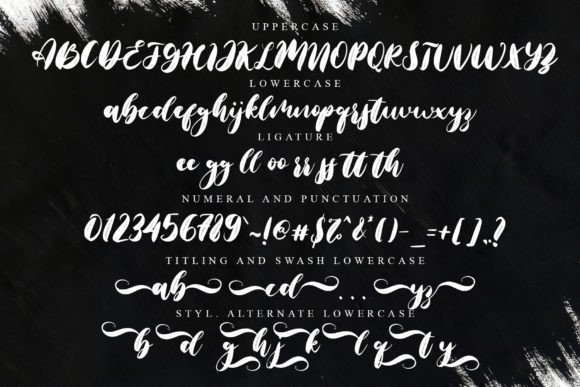 UPPERCASE
ABCDEFGHIJKLMNOPQRSTUVWXYZ
LOWERCASE
abcdefghijklmnopqrstuvwxyz
LIGATURE
ee gg ll oo rr ss tt th
NUMERAL AND PUNCTUATION
0123456789`~!@#$%^&*()-_=+[],.?
TITLING AND SWASH LOWERCASE
ab cd ... yz
STYL. ALTERNATE LOWERCASE
b d g h j k l q t y